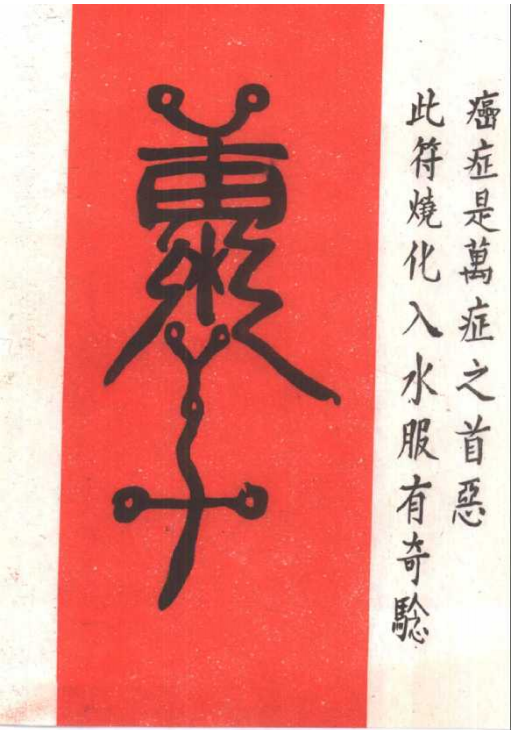 癌症是萬症之首惡
此符燒化入水服有奇騐